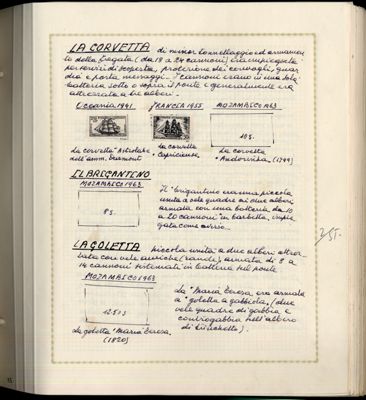 LA CORVETTA di minor tonnellaggio ed armamen
to della fregata (da 18 a 24 cannoni) era impiegata
per servizi di scoperta, protezione dei convogli, guar
dia e porta messaggi. I cannoni erano in una sola
batteria sotto o sopra il ponte e generalmente era
attrezzata a tre alberi.
OCEANIA 1941
FRANCIA 1955
MOZAMBICO 1963
10 s.
La corvetta "Astrolabe
dell'amm.
La corvetta
"Capricieuse"
La corvetta
(1799)
IL BRIGANTINO
MOZAMBICO 1963
8 s.
Il "brigantino era una piccola
unità a vele quadre su due alberi
armata con una batteria da 10
a 20 cannoni in barbetta, impie
gata come avviso.
LA GOLETTA piccola unità a due alberi attrez
zata con vele auriche (rande), armata di 8 a
14 cannoni sistemati in batteria sul ponte
MOZAMBICO 1963
La goletta "Maria Teresa"
(1820)
La "Maria Teresa, era armata
a "goletta a gabbiola, (due
vele quadre di gabbia e
controgabbia nell'albero
di trinchetto).